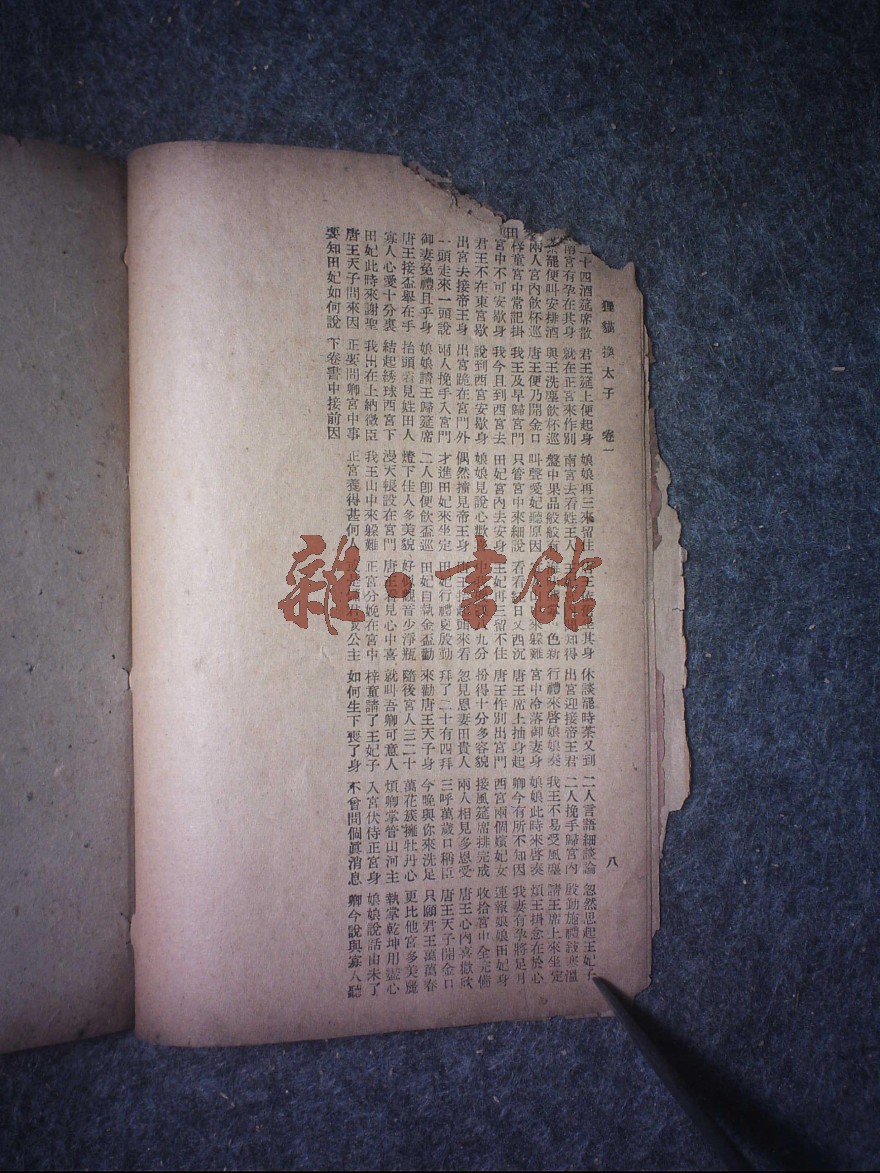 狸貓換太子 卷一 八
十四酒筵席散 君王筵上便起身 娘娘再三來留住 其身 休談罷時茶又到 二人言語細談論 忽然思起王妃子
南宮有孕在其身 就在正宮來作別 南宮去看姓王人 知得 出宮迎接帝王君 二人挽手歸宮內 殷勤施禮敘寒溫
罷便叫安排酒 與王洗塵飲杯巡 盤中果品般般有 色新 行禮來啓娘娘奏 我王不易受風塵 請王席上來坐定
兩人宮內飲杯巡 唐王便乃開金口 叫聲愛妃聽原因 來躲難 宮中冷落御妻身 娘娘此時來啓奏 煩王掛念在於心
梓童宮中常記掛 我王及早歸宮門 只管宮中來細說 看看紅日又西沉 唐王席上抽身起 卿今有所不知因 我妻有孕將足月
宮中不可安歇身 我今且到西宮去 田妃宮內去安身 王妃再三留不住 唐王作別出宮門 西宮兩個嬪妃女 連報娘娘田妃身
君王不在東宮歇 說到西宮安歇身 娘娘見說心歡喜 九分 扮得十分多容貌 接風筵席排完成 收拾宮中全完備
出宮去接帝王身 出宮跪在宮門外 偶然撞見帝王身 起頭來看 忽見恩妻田貴人 兩人相見多恩愛 唐王心內喜歡欣
一頭走來一頭說 兩人挽手入宮門 才進田妃來坐定 田妃行禮更殷勤 拜了二十有四拜 三呼萬歲口稱臣 唐王天子開金口
御妻免禮且平身 娘娘請王歸筵席 二人卽便飲盃巡 田妃自執金盃勸 來勸唐王天子身 今晚與你來洗足 只願君王萬萬春
唐王接盃舉在手 抬頭看見姓田人 燈下佳人多美貌 好似觀音少淨瓶 隨後宮人三二十 萬花蔟擁牡丹心 更比他宮多美麗
寡人心愛十分裏 結起綉球西宮下 漫天帳設在宮門 唐王看見心中喜 就叫吾卿可意人 煩卿掌管山河主 執掌乾坤用盡心
田妃此時來謝聖 我出在上納微臣 我王山中來躲難 正宮分娩在宮中 梓童請了王妃子 入宮伏侍正宮身 娘娘說話由未了
唐王天子問來因 正要問卿宮中事 正宮養得甚何人 公主 如何生下喪了身 不曾問個眞消息 卿今說與寡人聽
要知田妃如何說 下卷書中接前因
雜·書館